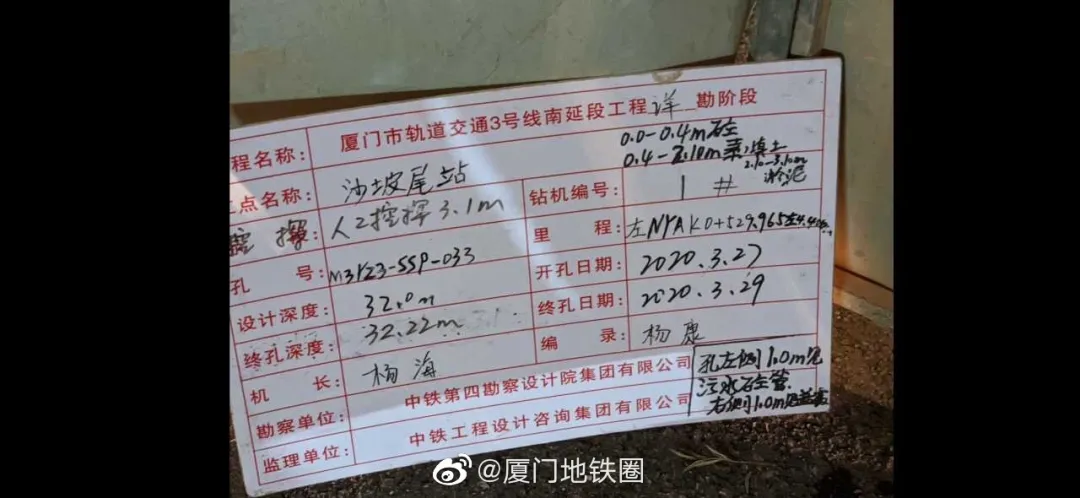 厦门市轨道交通3号线南延段工程详勘阶段
程名称：
0.0-0.4m砼
0.4-2.10m素填土
2.10-3.10m
淤泥
点名称：沙坡尾站
钻机编号：1#
挖探：人工挖探3.1m
里程：左NYAK0+529.965左4.4
孔号：M3YZ3-SSP-033
开孔日期：2020.3.27
设计深度：32.0m
终孔日期：2020.3.29
终孔深度：32.22m
编录：杨康
机长：杨海
勘察单位：中铁第四勘察设计院集团有限公司
孔左侧1.0m处
污水砼管
右侧1.0m
监理单位：中铁工程设计咨询集团有限公司
@厦门地铁圈